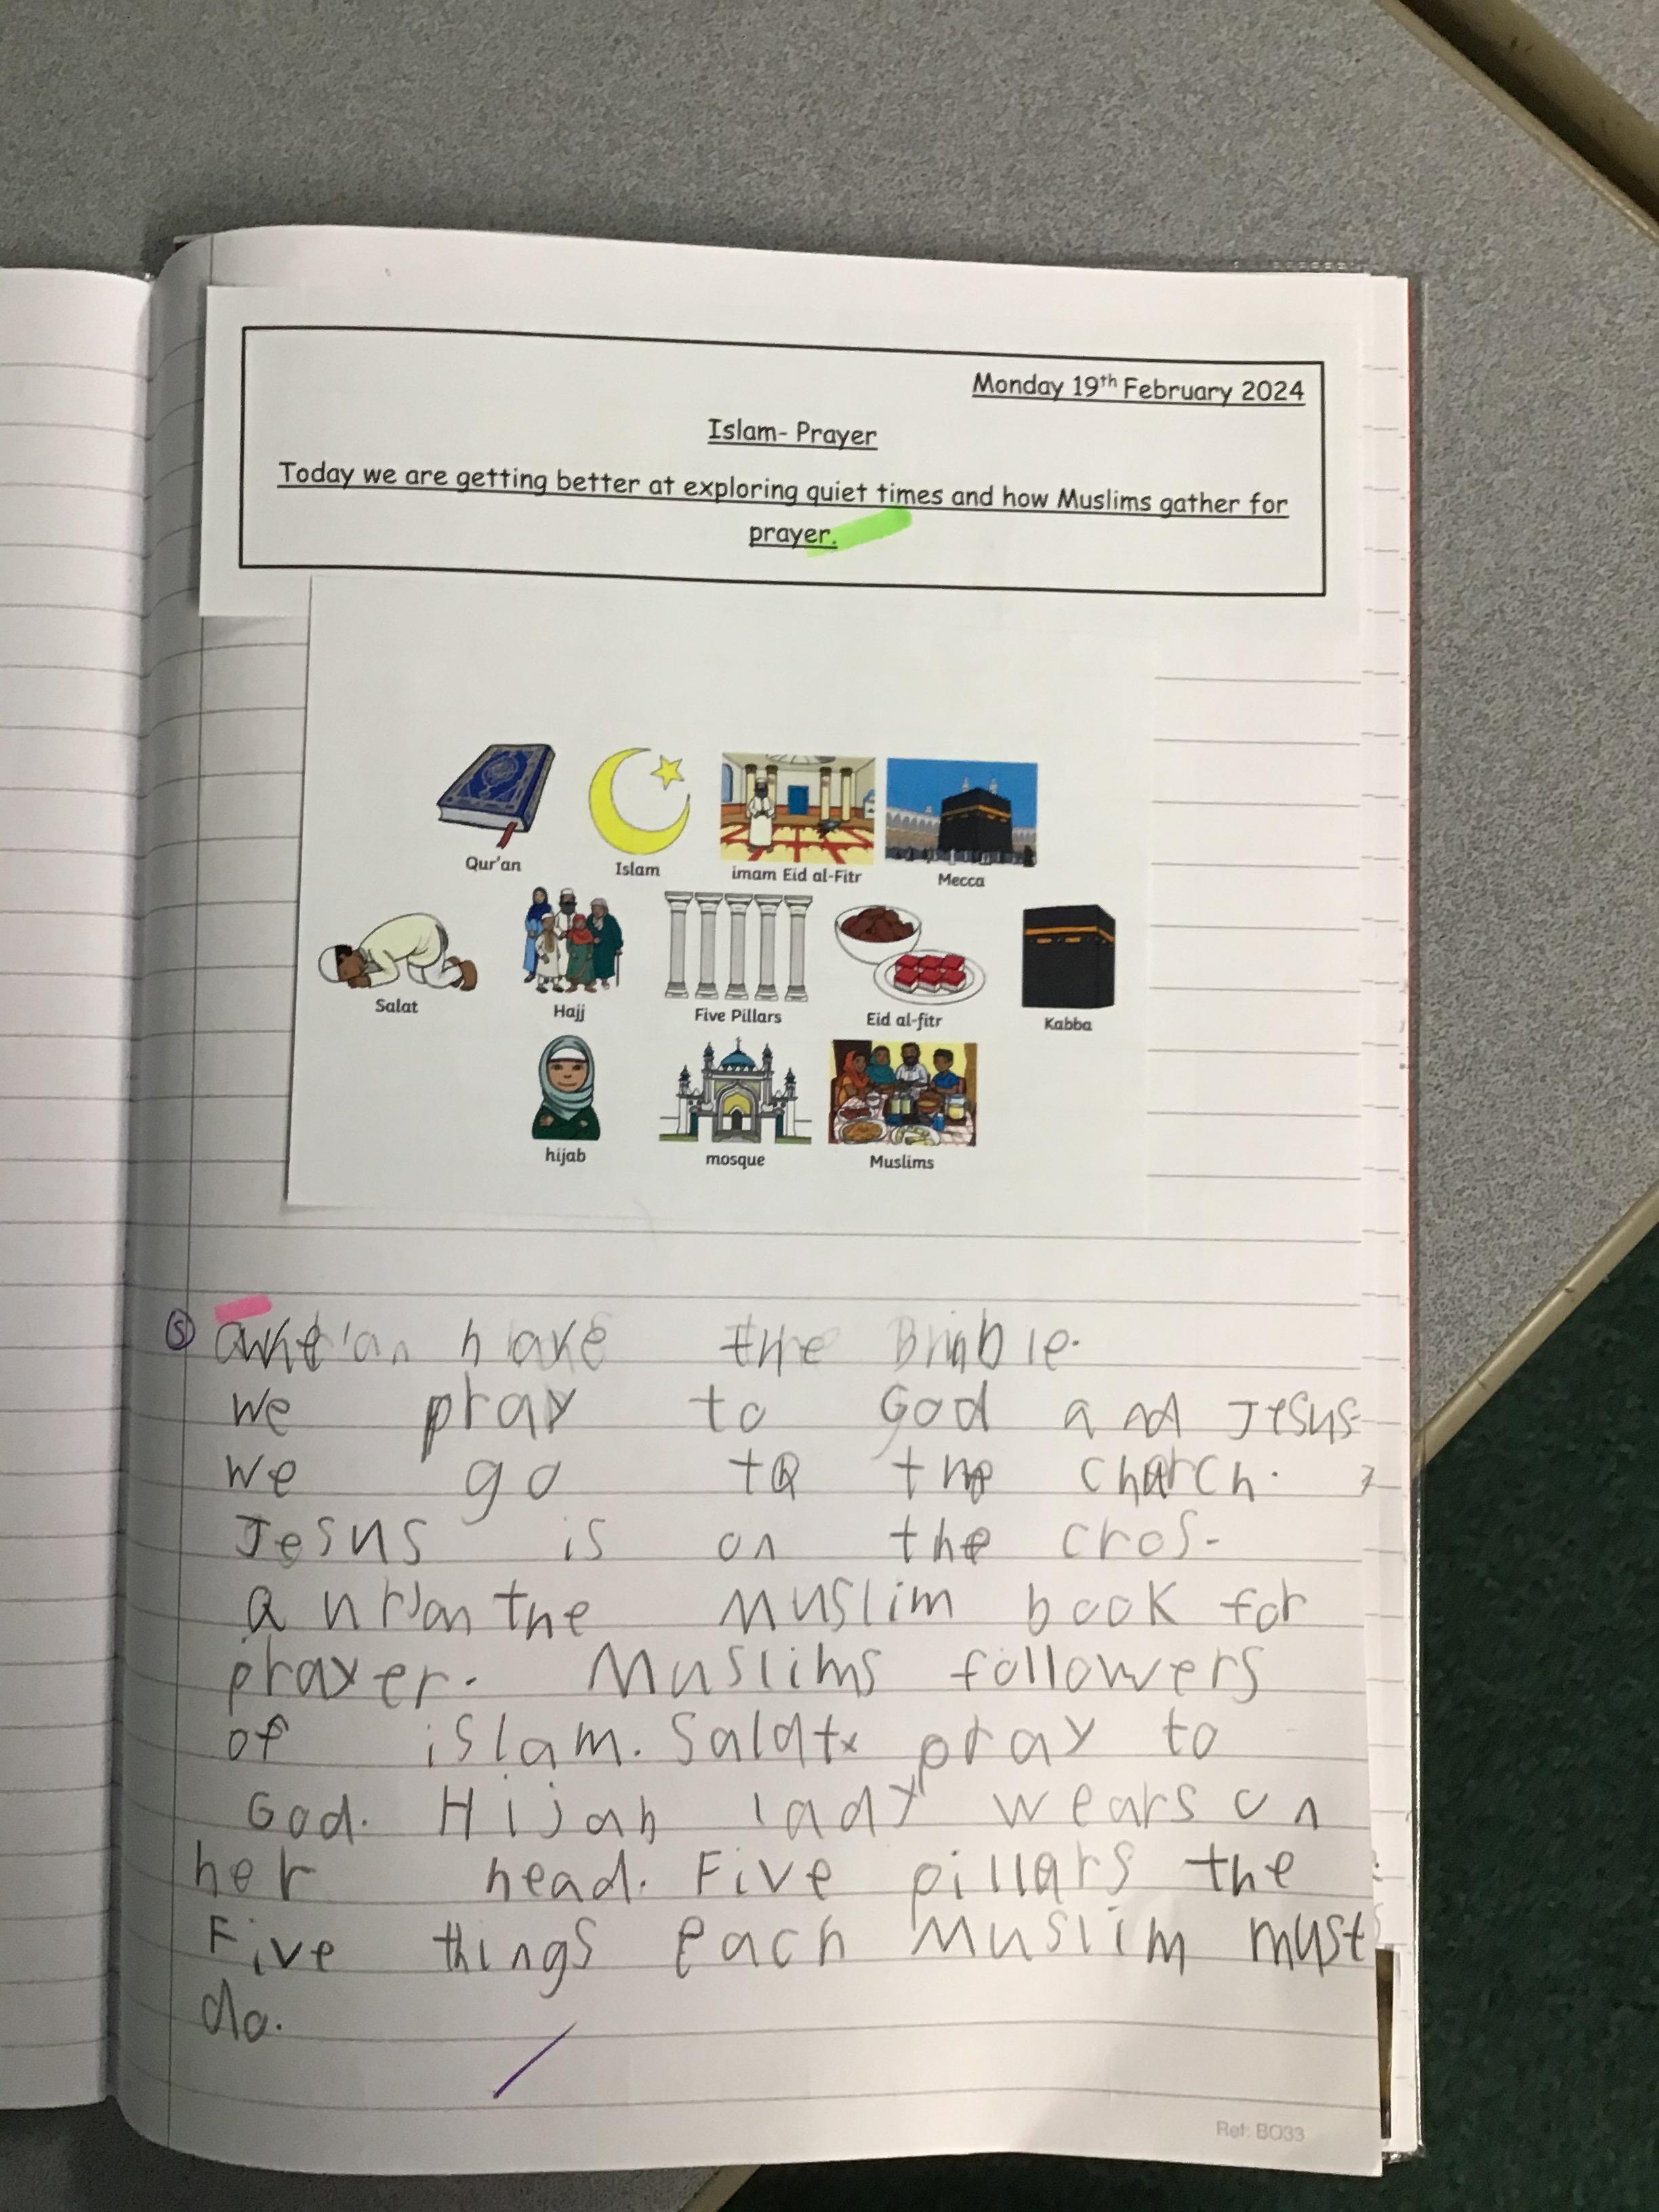 Monday 19th February 2024
Islam- Prayer
Today we are getting better at exploring quiet times and how Muslims gather for
prayer.
Qur'an
Islam
imam Eid al-Fitr
Mecca
Salat
Hajj
Five Pillars
Eid al-fitr
Kabba
hijab
mosque
Muslims
S
have the
we pray to God and Jesus.
we go to the church.
Jesus is on the cros.
Qur'an the Muslim book for
prayer. Muslims followers
of islam. Salat pray to
God. Hijab lady wears on
her head. Five pillars the
Five things each Muslim must
do.
Ref: BO33